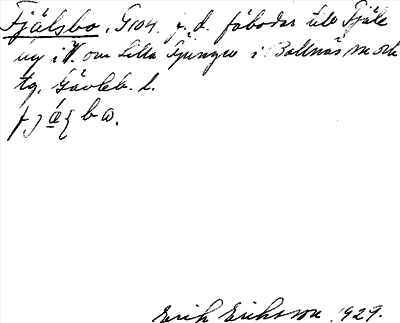 Fjälsbo, G104. f. d. fäbodar till Fjäle
ug i V. om Lilla Tjungen i Bollnäs sn och
tg. Gävleb. l.
Erik Eriksson 1929.